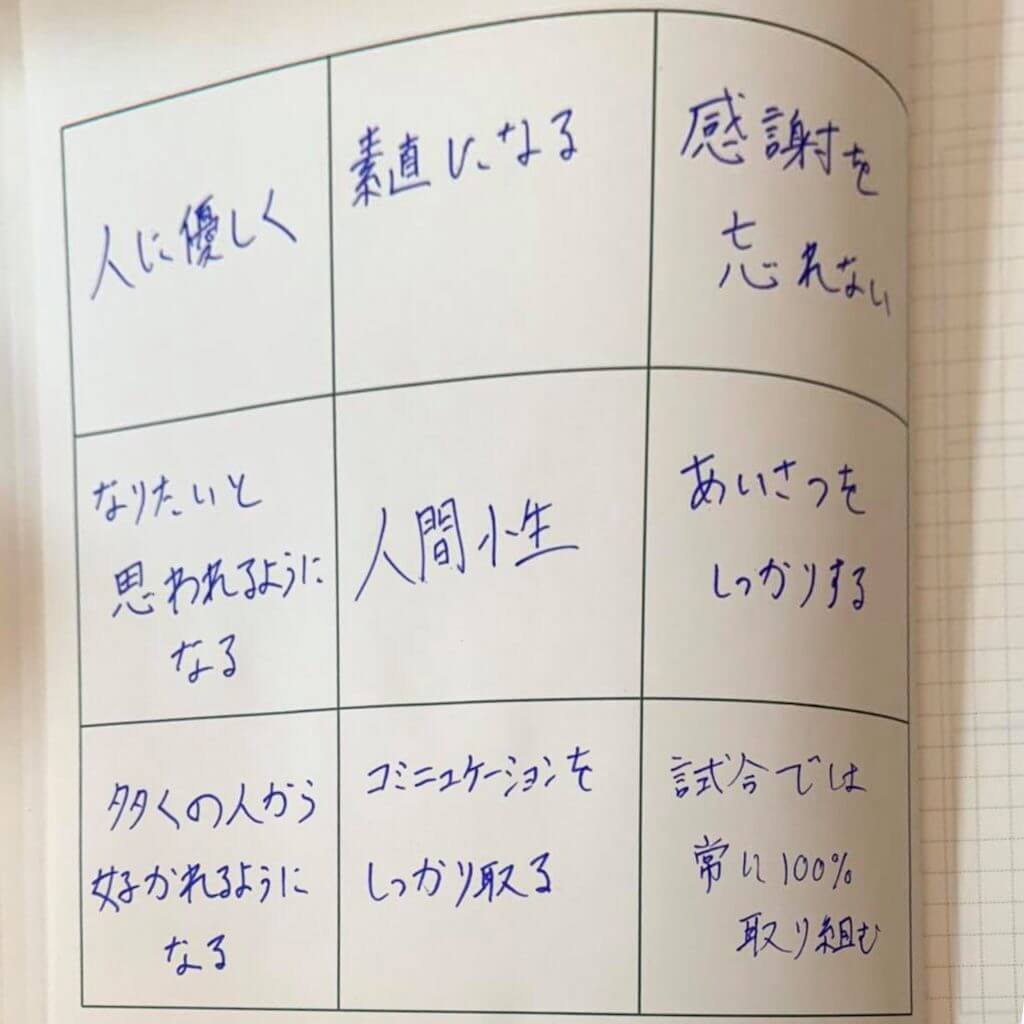 人に優しく
素直になる
感謝を
忘れない
なりたいと
思われるように
なる
人間性
あいさつを
しっかりする
多くの人から
好かれるように
なる
コミニュケーションを
しっかり取る
試合では
常に100%
取り組む